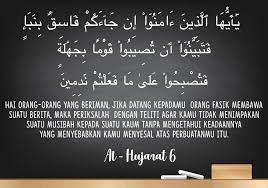 يَٰٓأَيُّهَا ٱلَّذِينَ ءَامَنُوٓا۟ إِن جَآءَكُمْ فَاسِقٌۢ بِنَبَإٍ
فَتَبَيَّنُوٓا۟ أَن تُصِيبُوا۟ قَوْمًۢا بِجَهَٰلَةٍ
فَتُصْبِحُوا۟ عَلَىٰ مَا فَعَلْتُمْ نَٰدِمِينَ
HAI ORANG-ORANG YANG BERIMAN, JIKA DATANG KEPADAMU ORANG FASIK MEMBAWA
SUATU BERITA, MAKA PERIKSALAH DENGAN TELITI AGAR KAMU TIDAK MENIMPAKAN
SUATU MUSIBAH KEPADA SUATU KAUM TANPA MENGETAHUI KEADAANNYA
YANG MENYEBABKAN KAMU MENYESAL ATAS PERBUATANMU ITU.
At - Hujarat 6